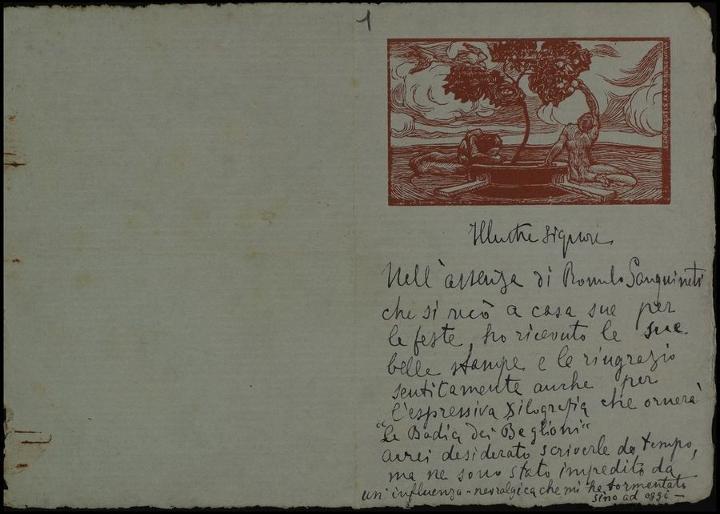 1
Illustre Signore
Nell'assenza di Romolo Sanguineti
che si recò a casa sua per
le feste, ho ricevuto le sue
belle stampe e la ringrazio
sentitamente anche per
l'espressiva Xilografia che ornerà
"la Badia dei Baglioni"
Avrei desiderato scriverle da tempo,
ma ne sono stato impedito da
un'influenza-nevralgica che mi ha tormentato
sino ad oggi —